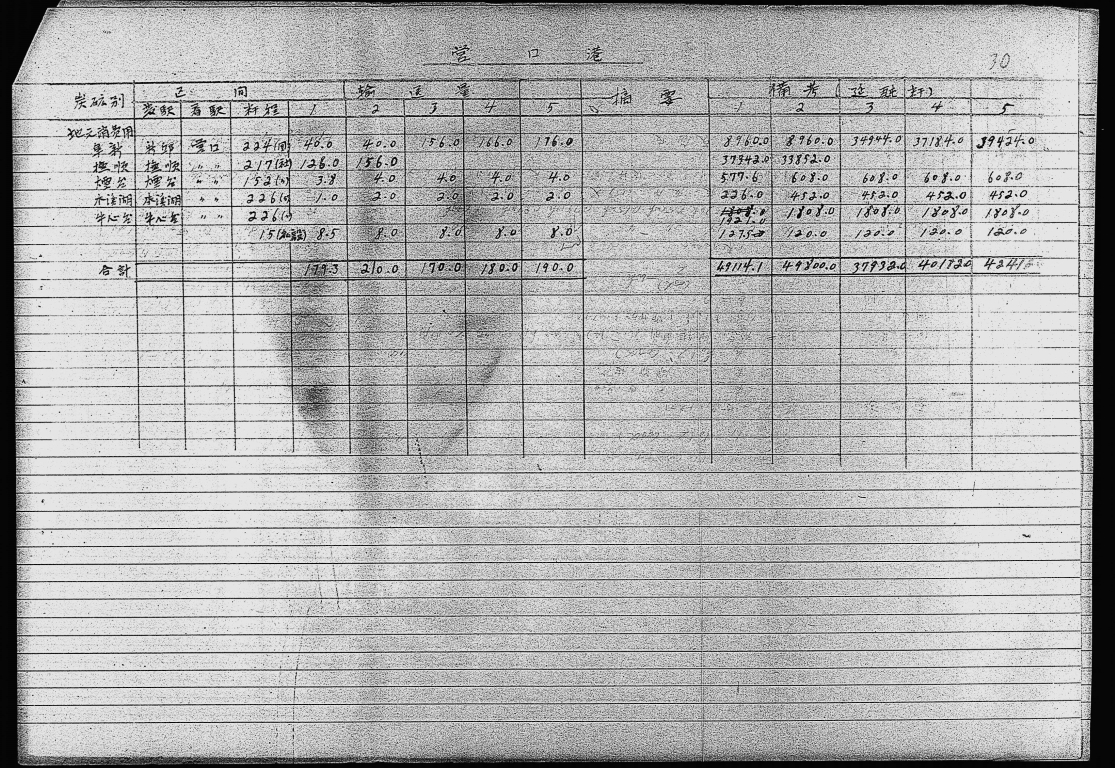 営口港
30
炭砿別 区間 輸送量 摘要 備考(延瓲粁)
発駅 着駅 粁程 1 2 3 4 5 1 2 3 4 5
地元消費用
阜新 営口 224 40.0 40.0 156.0 166.0 176.0 8960.0 8960.0 34944.0 37184.0 39424.0
撫順 撫順 〃 217 126.0 156.0 37942.0 33852.0
煙台 煙台 〃 152 3.8 4.0 4.0 4.0 4.0 577.6 608.0 608.0 608.0 608.0
本渓湖 本渓湖 〃 226 1.0 2.0 2.0 2.0 2.0 226.0 452.0 452.0 452.0 452.0
牛心台 牛心台 〃 226 1808.0 1808.0 1808.0 1808.0
1921.0
15 8.5 8.0 8.0 8.0 8.0 127.5 120.0 120.0 120.0 120.0
合計 210.0 170.0 180.0 190.0 49114.1 49800.0 37932.0 40172.0